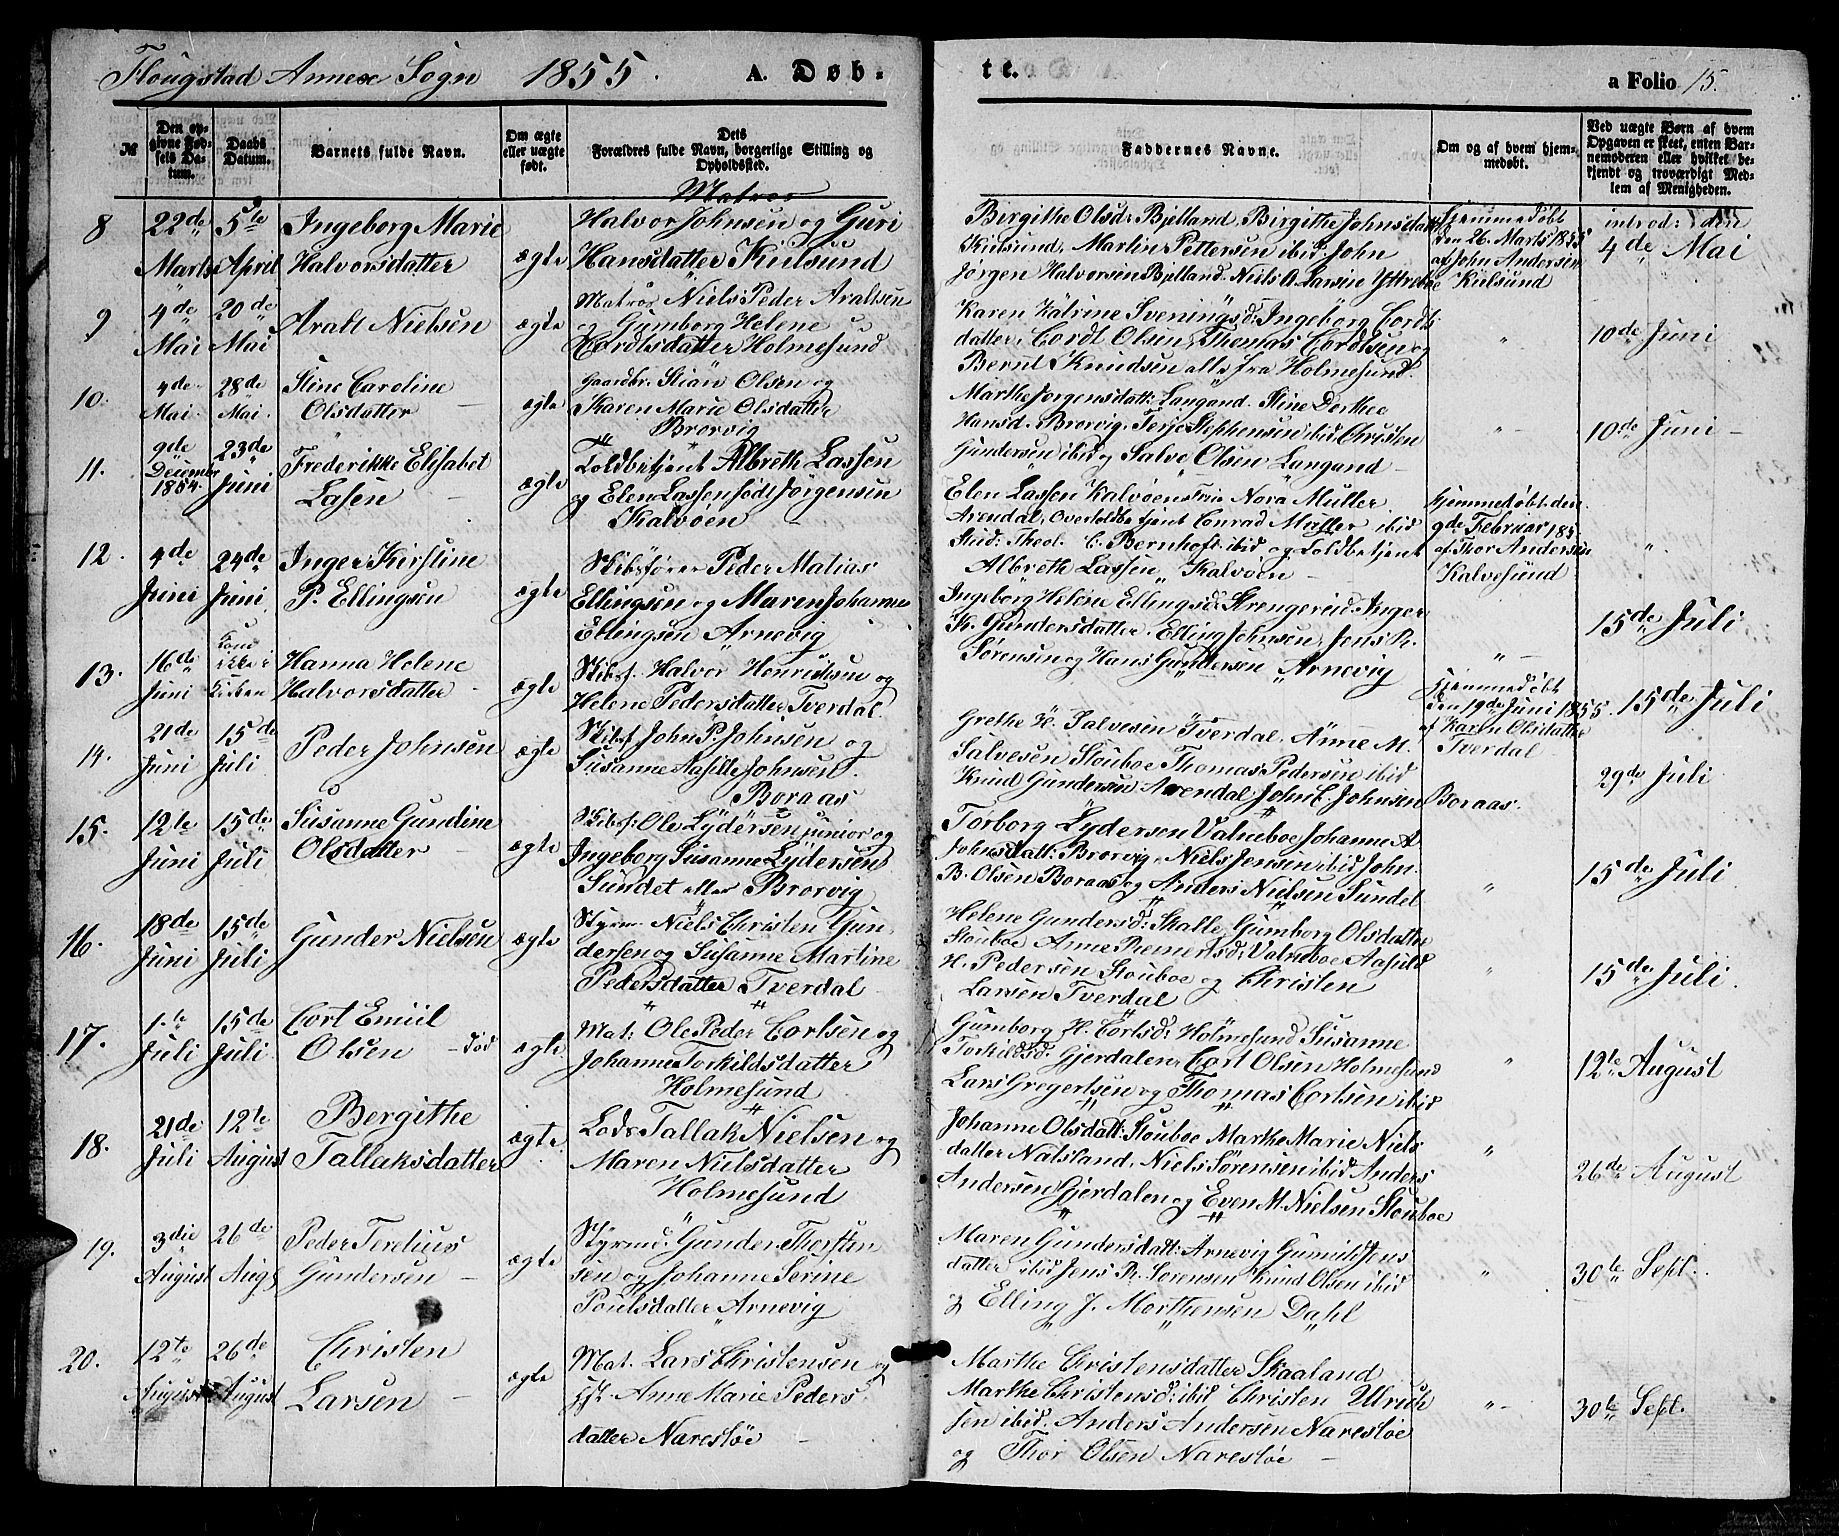 Flougstad Annex Sogn 1855. A. Døb-
№
Den op-
givne Fød-
sels Da-
tum.
Daabs
Datum.
Barnets fulde Navn.
Om ægte
eller uægte
født.
Dets
Forældres fulde Navn, borgerlige Stilling og
Opholdssted.
8
22de
Marts
5te
April
Ingeborg Marie
Halvorsdatter
ægte
Matros
Halvor Johnsen og Guri
Hansdatter Kiilsund
9
4de
Mai
20de
Mai
Aralt Nielsen
ægte
Matros Niels Peder Araltsen
og Gumborg Helene
Cordtsdatter Holmesund
10.
4de
Mai.
28de
Mai.
Stine Caroline
Olsdatter
ægte
Gaardbr. Stian Olsen og
Karen Marie Olsdatter
Brorvig
11.
9de
Decembr
1854.
23de
Juni
Frederikke Elisabet
Lasen
ægte
Toldbetjent Albreth Lassen
og Elen Lassen født Jörgensen
Kalvöen
12.
4de
Juni
24de
Juni
Inger Kirstine
P. Ellingsen
ægte
Skibsförer Peder Matias
Ellingsen og Maren Johanne
Ellingsen Arnevig
13.
16de
Juni
Hanna Helene
Halvorsdatter
ægte
Skibsf. Halvor Henriksen og
Helene Pedersdatter Tverdal.
14.
21de
Juni
15de
Juli
Peder Johnsen
ægte
Skibsf. John P. Johnsen og
Susanne Aasille Johnsen.
Boraas
15.
12te
Juni
15de
Juli
Susanne Gundine
Olsdatter
ægte
Skibsf. Ole Lydersen junior og
Ingeborg Susanne Lydersen
Sundet eller Brorvig
16.
18de
Juni
15de
Juli
Gunder Nielsen
ægte
Styrm. Niels Christen Gun
dersen og Susanne Martine
Pedersdatter Tverdal
17.
1te
Juli
15de
Juli
Cort Emiil
Olsen - død
ægte
Mat: Ole Peder Cortsen og
Johanne Torkildsdatter
Holmesund
18.
21de
Juli
12te
August
Bergithe
Tallaksdatter
ægte
Lods Tallak Nielsen og
Maren Nielsdatter
Holmesund
19.
3die
August
26de
Augs
Peder Terelius
Gundersen
ægte
Styrmd. Gunder Thorsten
sen og Johanne Serine
Poulsdatter Arnevig
20.
12te
August
26de
August
Christen
Larsen
ægte
Mat. Lars Christensen og
Anne Marie Peders
datter Narestöe
te.
a Folio 15.
Faddernes Navne.
Om og af hvem hjem-
medøbt.
Ved uægte Børn af hvem
Opgaven er skeet, enten Bar-
nemoderen eller hvilket be-
kjendt og troværdigt Med-
lem af Menigheden.
Birgithe Olsd: Bjelland, Birgithe Johnsdatt
Kiilsund, Martin Pettersen ibid John
Jörgen Halvorsen Bjelland. Niels A. Larsen Yttreböe
Hjemmedöbt
den 26. Marts 1855
af John Andersen
Kiilsund
introd: den
4de Mai
Karen Katrine Sveningsd: Ingeborg Cordts
datter, Cordt Olsen, Thomas Cordtsen og
Bernt Knudsen alle fra Holmesund.
"
10de Juni
Marthe Jorgensdatt: Langand. Stine Dorthee
Hansd. Brorvig. Terje Stephensen ibid. Christen
Gundersen ibid og Salve Olsen Langand -
" -
10de Juni -
Elen Lassen Kalvöen Frue Nora Müller.
Arendal, Overtoldbetjent Conrad Müller ibid
Stud: Theol. C. Bernhoft ibid og Toldbetjent
Albreth Lassen Kalvöen -
Hjemmedöbt den
9de Februar 185
af Thor Andersen
Kalvesund
"
Ingeborg Helene Ellingsd: Strengereid. Inger
K. Gundersdatter. Elling Johnsen, Jens Pr.
Sörensen og Hans Gundersen Arnevig
" -
15de Juli
Hjemmedöbt
den 19de Juni 1855.
af Karen Olsdatter
Tverdal -
15de Juli
Grethe H. Salvesen Tverdal, Anne M.
Salvesen Stouboe Thomas Pedersen ibid
Knud Gundersen Arendal John C. Johnsen Boraas.
29de Juli
Torborg Lydersen Valneboe Johanne A
Johnsdatt: Brorvig, Niels Jensen ibid John
B. Olsen Boraas og Anders Nielsen Sundet
"
15de Juli
Helene Gundersd: Skalle, Gumborg Olsdatte
Stouboe Anne Remertsd: Valneboe Aasuld
H. Pedersen Stouboe og Christen
Larsen Tverdal
"
15de Juli.
Gumborg H. Cortsd: Holmesund Susanne
Torkildsd. Gjerdalen Cort Olsen Holmesund
Lars Gregertsen og Thomas Cortsen ibid
"
12te August
Johanne Olsdatt: Stouboe Marthe Marie Niels
datter Nalsland, Niels Sörensen ibid Anders
Andersen Gjerdalen og Even M. Nielsen Stouboe
"
26de August
Maren Gundersdatt: Arnevig Gunild Jens
datter ibid Jens Pr. Sorensen Knud Olsen ibid
og Elling J. Morthensen Dahl
"
30te Sept.
Marthe Christensdatter Skaaland
Marthe Christensd: ibid Christen Ulrich
sen ibid. Anders Andersen Narestöe
og Thor Olsen Narestöe -
" -
30te Sept.